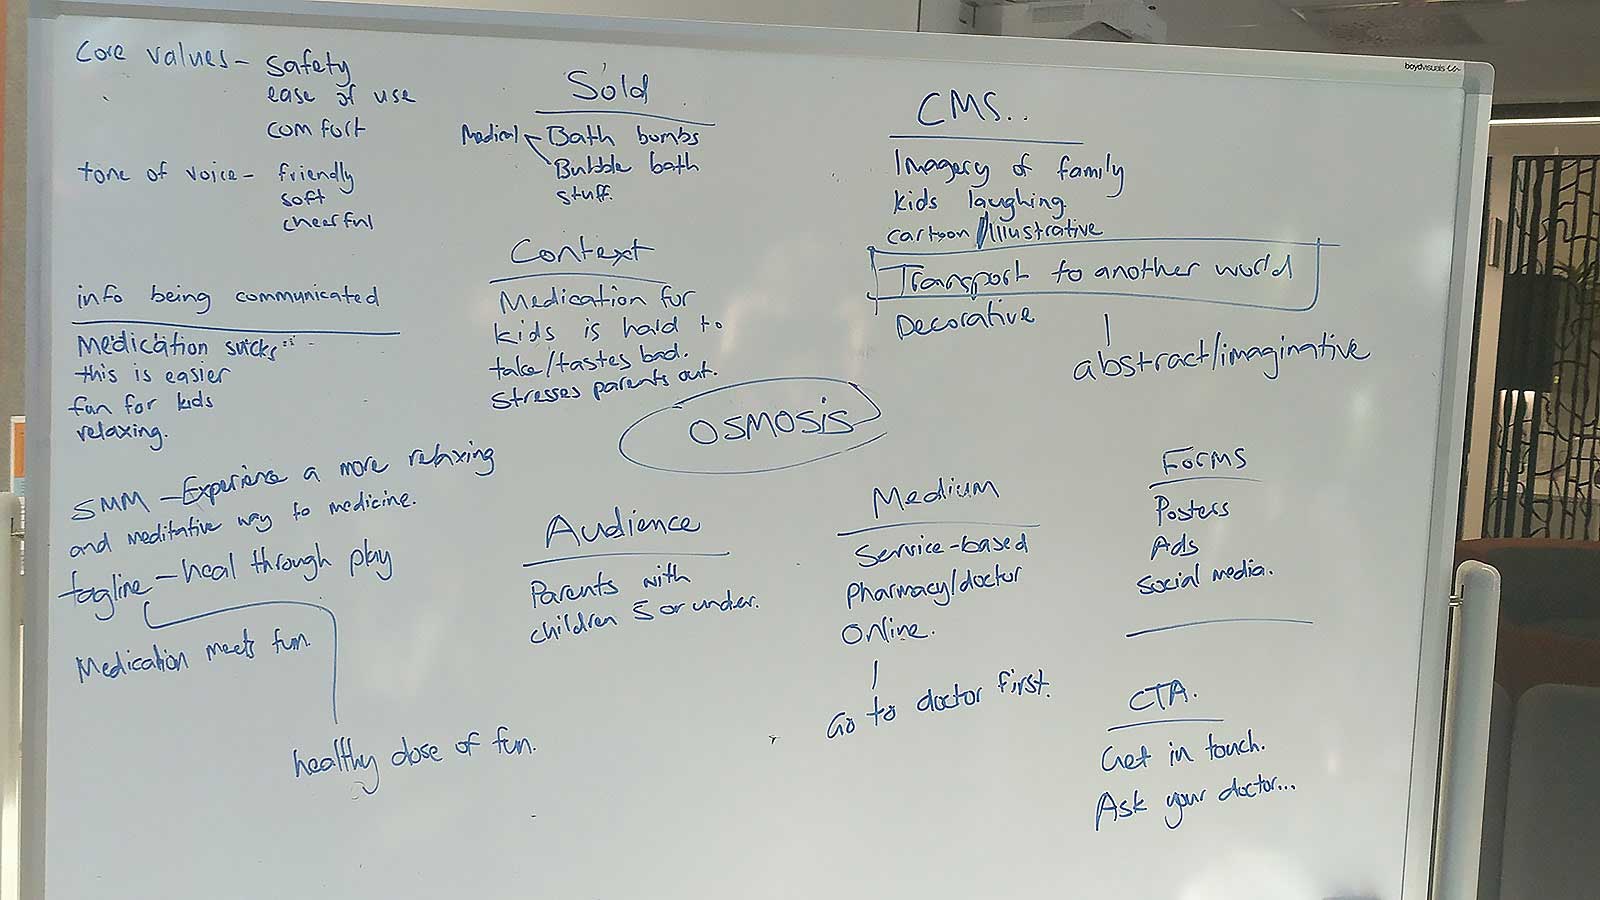 Core values - safety
ease of use
comfort
tone of voice - friendly
soft
cheerful
info being communicated
Medication sucks
this is easier
fun for kids
relaxing.
SMM - Experience a more relaxing
and meditative way to medicine.
tagline - heal through play
Medication meets fun.
healthy dose of fun.
Sold
Medical
Bath bombs
Bubble bath
stuff.
Context
Medication for
kids is hard to
take/tastes bad.
Stresses parents out.
OSMOSIS
Audience
Parents with
children 5 or under.
CMS..
Imagery of family
kids laughing
cartoon/Illustrative
Transport to another world
Decorative
abstract/imaginative
Medium
Service-based
Pharmacy/doctor
Online.
Go to doctor first.
Forms
Posters
Ads
Social media.
CTA.
Get in touch.
Ask your doctor...
boydvisuals